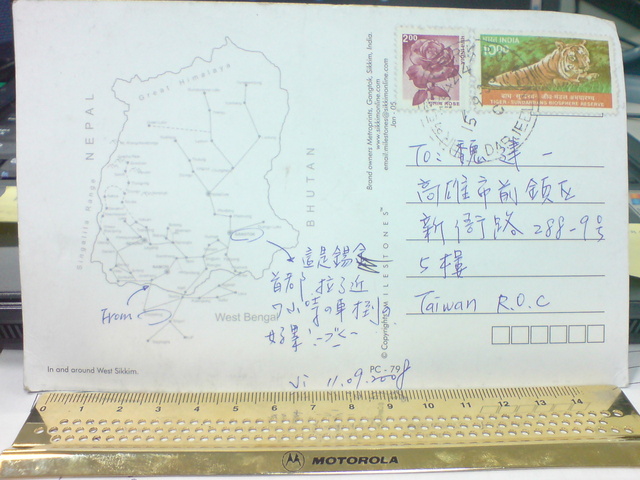 NEPAL
Great Himalaya
BHUTAN
Singalila Range
West Bengal
From
這是錫金
首都 拉了近
7小時の車
好暈
Vi 11.09.2008
In and around West Sikkim.
Brand owners Metroprints, Gangtok, Sikkim, India.
www.sikkimonline.com
email:milestones@sikkimonline.com
Jan - 05
© Copyright MILESTONES™
PC - 79
2.00
भारत INDIA
भारत INDIA
1000
TIGER-SUNDARBANS BIOSPHERE RESERVE
To: 魏達一
高雄市前鎮區
新衙路 288-9號
5樓
Taiwan R.O.C
0 1 2 3 4 5 6 7 8 9 10 11 12 13 14
MOTOROLA